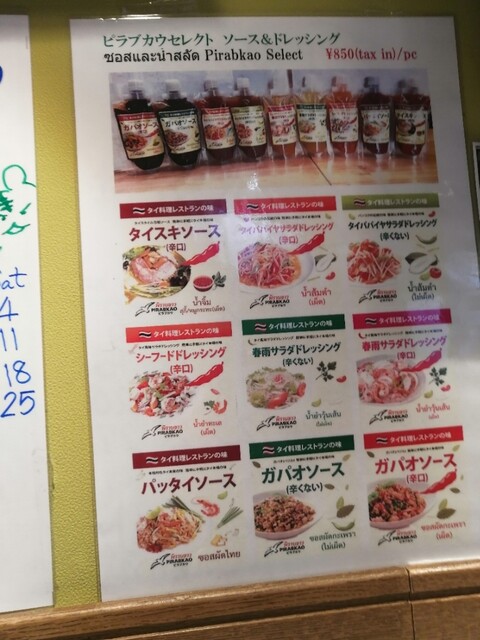 at
4
11
18
25
ピラブカウセレクト ソース&ドレッシング
ซอสและน้ำสลัด Pirabkao Select ¥850(tax in)/pc
タイ料理レストランの味
タイスキソース
(辛口)
น้ำจิ้ม
สุกี้หมูกระทะ(เผ็ด)
PIRABKAO
タイ料理レストランの味
タイパパイヤサラダドレッシング
(辛口)
น้ำส้มตำ
(เผ็ด)
PIRABKAO
タイ料理レストランの味
タイパパイヤサラダドレッシング
(辛くない)
น้ำส้มตำ
(ไม่เผ็ด)
PIRABKAO
タイ料理レストランの味
シーフードドレッシング
(辛口)
น้ำยำทะเล
(เผ็ด)
PIRABKAO
タイ料理レストランの味
春雨サラダドレッシング
(辛くない)
น้ำยำวุ้นเส้น
(ไม่เผ็ด)
PIRABKAO
タイ料理レストランの味
春雨サラダドレッシング
(辛口)
น้ำยำวุ้นเส้น
(เผ็ด)
PIRABKAO
タイ料理レストランの味
パッタイソース
ซอสผัดไทย
PIRABKAO
タイ料理レストランの味
ガパオソース
(辛くない)
ซอสผัดกะเพรา
(ไม่เผ็ด)
PIRABKAO
タイ料理レストランの味
ガパオソース
(辛口)
ซอสผัดกะเพรา
(เผ็ด)
PIRABKAO